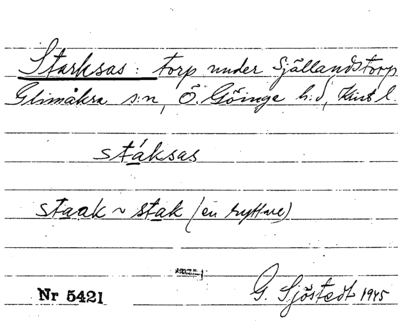 Starksas: torp under Själlandstorp
Glimåkra s:n, Ö. Göinge h:d, Krist l.
stáksas
staak ~ stak (en ryttare)
Nr 5421
G. Sjöstedt 1945